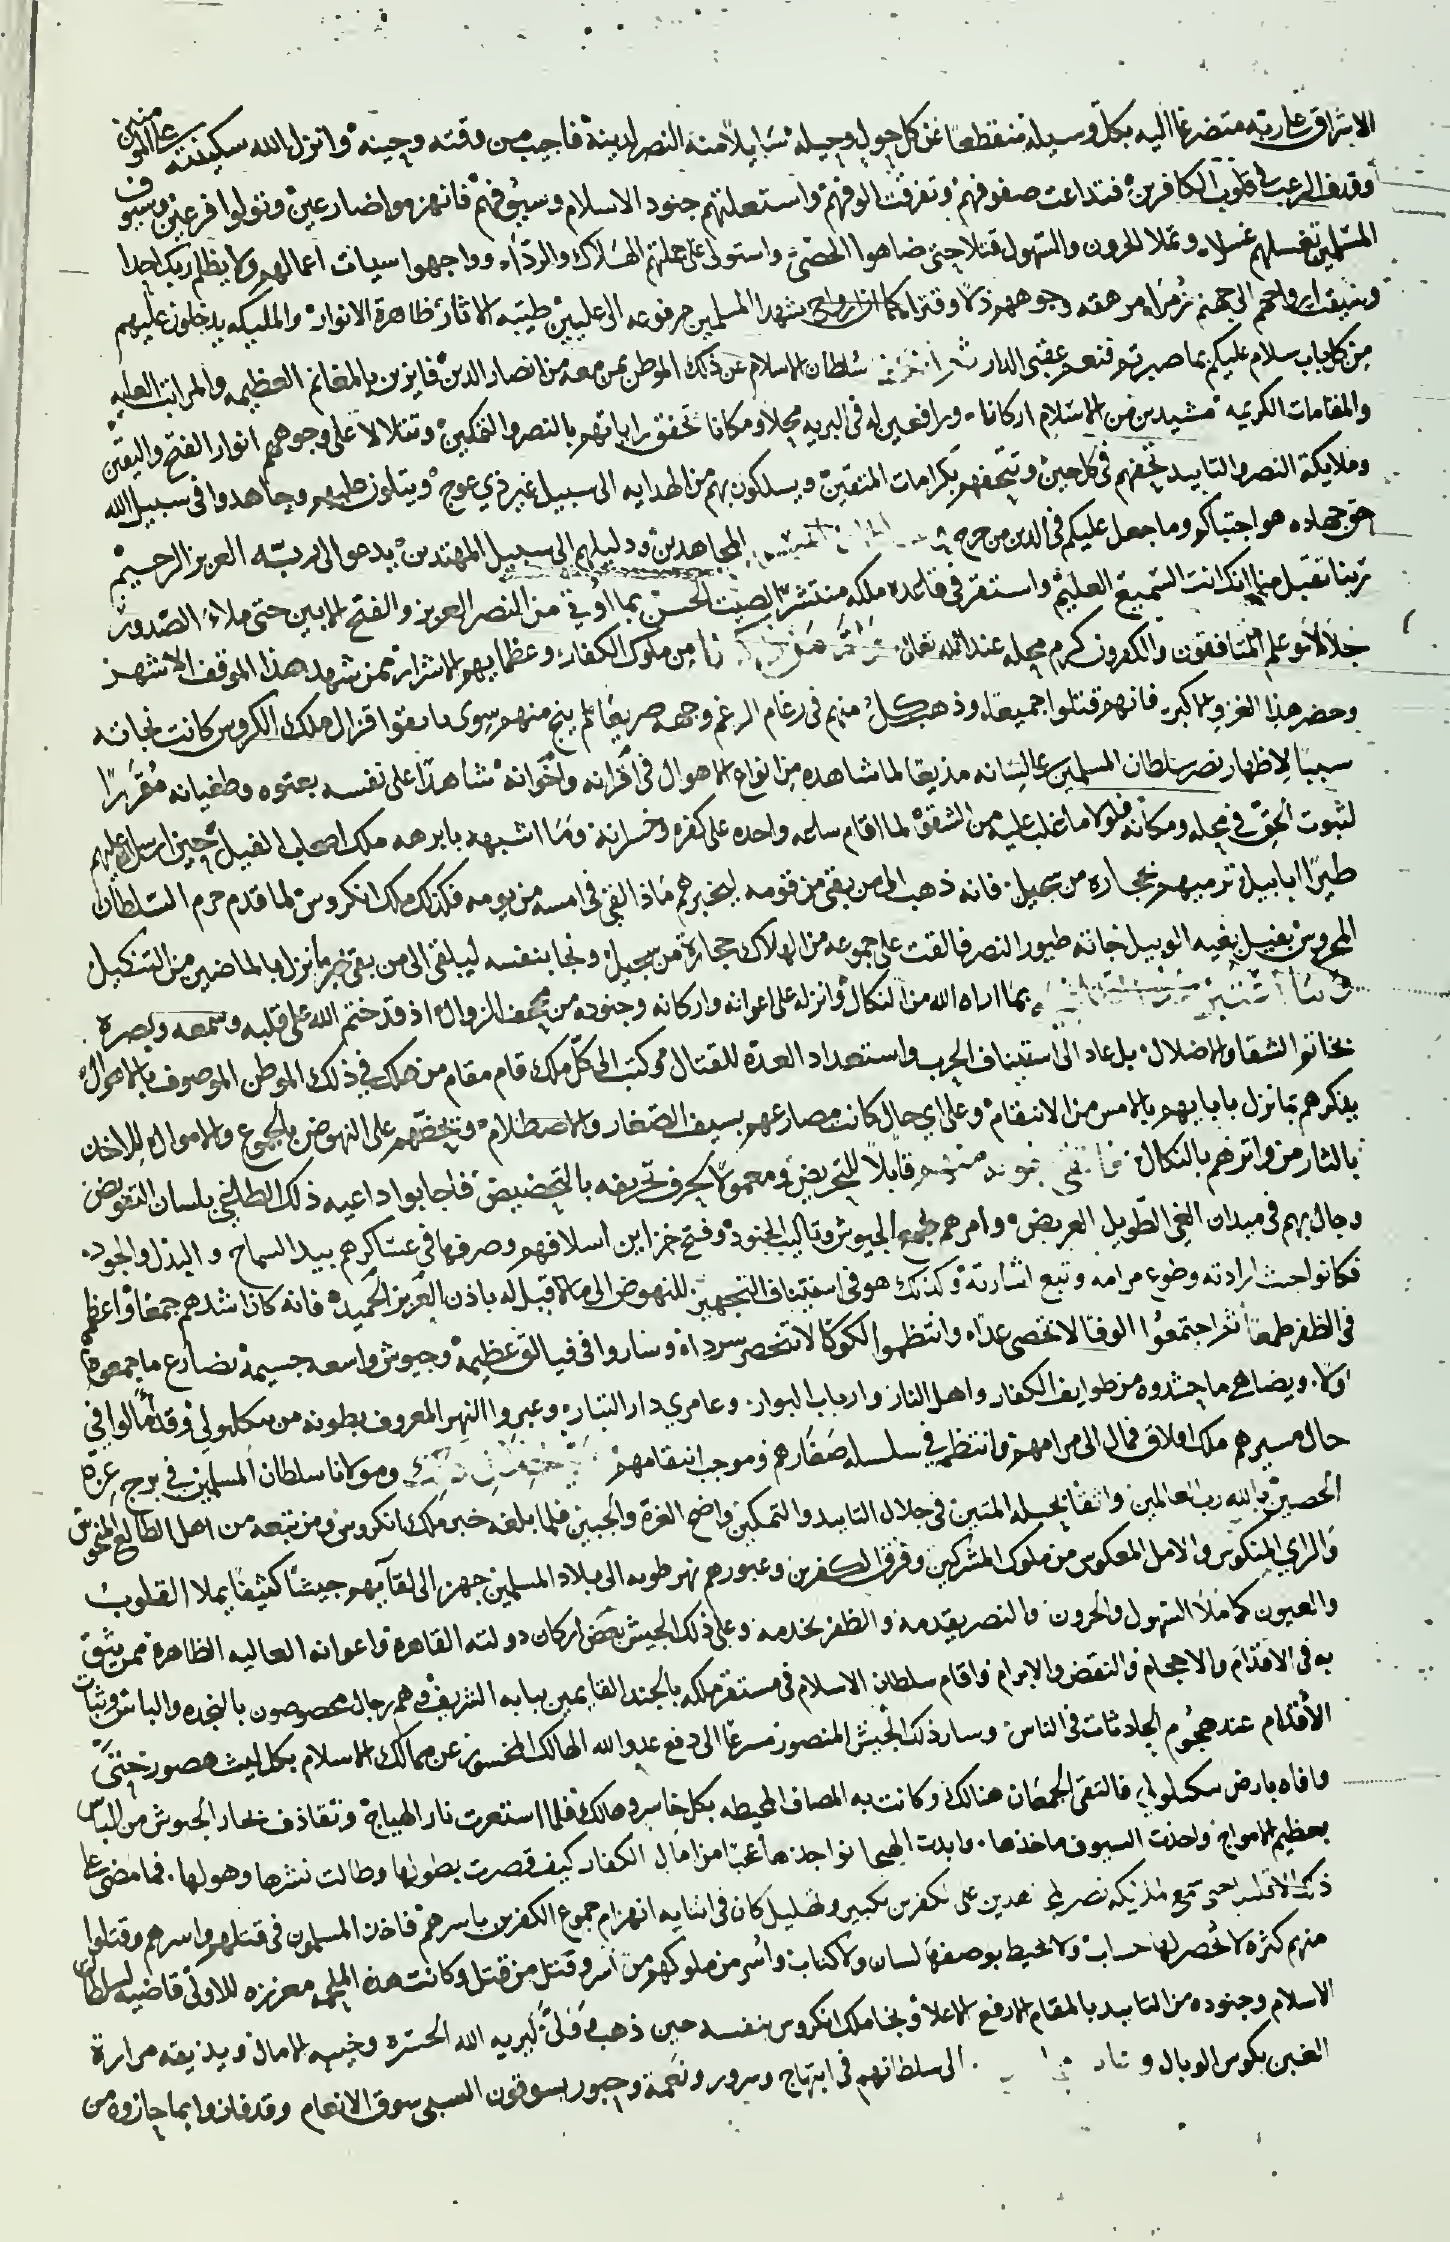 الاشراق على ربه متضرعا اليه بكل وسيله منقطعا عن كل حول وحيله سايلا منه النصر لدينه فاجيب من وقته وحينه وانزل الله سكينته على المؤمنين
وقذف الرعب في قلوب الكافرين فتداعت صفوفهم وتفرقت الوفهم واستعلتهم جنود الاسلام وسيوفهم فانهزموا ضارعين وتولوا فزعين وسيوف
المسلمين تغسلهم غسلا وتملا الحزون والسهول قتلا حتى ضاهوا الحصى واستولى على جملتهم الهلاك والرداء وواجهوا سيات اعمالهم ولا يظلم ربك احدا
وسيقت ارواحهم الى جهنم زمرا مرهقه وجوههم ذلا وقترا كما ان ارواح شهدا المسلمين مرفوعه الى عليين طيبه الاثار ظاهرة الانوار والمليكه يدخلون عليهم
من كل باب سلام عليكم بما صبرتم فنعم عقبى الدار ثم سلطان الاسلام عن ذلك الموطن بمن معه من انصار الدين فايزين بالمغانم العظيمه والمراتب العليه
والمقامات الكريمه مشيدين من الاسلام اركانا ورافعين له في البريه محلا ومكانا تخفق راياتهم بالنصر والتمكين وتتلالا على وجوههم انوار الفتح واليقين
وملايكة النصر والتاييد تحفهم في كل حين وتتحفهم بكرامات المتقين ويسلكون بهم من الهدايه الى سبيل غير ذي عوج ويتلون عليهم وجاهدوا في سبيل الله
حق جهاده هو اجتباكم وما جعل عليكم في الدين من حرج المجاهدين ودليلهم الى سبيل المهتدين يدعو الى ربه العزيز الرحيم
ربنا تقبل منا انك انت السميع العليم واستقر في قاعدة ملكه منتشر الصيت الحسن بما اوتي من النصر العزيز والفتح المبين حتى ملاء الصدور
جلالا وعلم المنافقون والكفرون كرم محله عند الله تعالى من ملوك الكفار وعظمايهم الاشرار ممن شهد هذا الموقف الاشهر
وحضر هذا الغزو الاكبر فانهم قتلوا جميعا وذهب كل منهم في رغام الرغم وجهه صريعا لم ينج منهم سوى ملك الكروس كانت نجاته
سببا لاظهار نصر سلطان المسلمين على لسانه مذيعا لما شاهده من انواع الاهوال في اقرانه واخوانه شاهدا على نفسه بعتوه وطغيانه مقررا
لثبوت الحق في محله ومكانه فلولا ما غلب عليه من الشقوة لما اقام ساعه واحده على كفره وخسرانه وما اشبهه بابرهه ملك اصحاب الفيل حين ارسل عليهم
طيرا ابابيل ترميهم بحجاره من سجيل فانه ذهب الى من بقى من قومه ليخبرهم ماذا القى في امسه من يومه فكذلك ملك انكروس لما قدم حرم السلطان
المحروس بفيل بغيه الوبيل خاتته طيور النصر فالقت على جموعه من الهلاك حجارة من سجيل ونجا بنفسه ليلقى الى من بقى خبر ما نزل بالماضين من التنكيل
بما اراه الله من النكال وانزله على اعوانه واركانه وجنوده من الزوال اذ قد ختم الله على قلبه وسمعه وبصره
بخاتم الشقا والاضلال بل عاد الى استيناف الحرب واستعداد العدة للقتال وكتب الى كل ملك قام مقام من هلك في ذلك الموطن الموصوف بالاهوال
يذكرهم بما نزل بابايهم بالامس من الانتقام وعلى اي حال كانت مصارعهم بسيف الصغار والاصطلام ويحضهم على النهوض بالجموع والاموال للاخذ
بالثار من واترهم بالنكال قابلا للتحريض ومعمولا لحرف تحريفه بالتحضيض فاجابوا داعيه ذلك الطاغي بلسان التفويض
وجال بهم في ميدان الغي الطويل العريض وامرهم بجمع الجيوش وتاليب الجنود وفتح خزاين اسلافهم وصرفها في عساكرهم بيد السماح والبذل والجود
فكانوا تحت ارادته وطوع مرامه وتبع اشارته وكذلك هو في استيناف التجهيز للنهوض الى مالا قبل له باذن العزيز الحميد فانه كان اشدهم جمعا واعظمهم
في الظفر طمعا ثم اجتمعوا الوفا لا تحصى عدا وانتظموا لكوكا لا تنحصر سردا وساروا في فيالق عظيمة وجيوش واسعه جسيمة تضارع ما جمعوه
اولا ويضاهي ما حشدوه من طوايف الكفار واهل النار وارباب البوار وعامري دار التبار وعبروا النهر المعروف بطونه من سكلبولي وقد مالوا في
حال مسيرهم ملك افلاق فمال الى مرامهم وانتظم في سلسله صغارهم وموجب انتقامهم ومولانا سلطان المسلمين في بروج عزه
الحصين بالله رب العالمين واثقا بحبله المتين في جلال التاييد والتمكين واضح الغرة والجبين فلما بلغه خبر ملك انكروس ومن تبعه من اهل الطالع المنحوس
والراي المنكوس والامل المعكوس من ملوك المشركين وفرق الكفرين وعبورهم نهر طونه الى بلاد المسلمين جهز الى لقآيهم جيشا كثيفا يملا القلوب
والعيون كما ملا السهول والحزون والنصر يقدمه والظفر يخدمه وعلى ذلك الجيش بعض اركان دولته القاهرة واعوانه العاليه الظاهرة ممن يثق
به في الاقدام والاحجام والنقض والابرام واقام سلطان الاسلام في مستقر ملكه بالجند القايمين ببابه الشريف وهم رجال مخصوصون بالنجده والباس وثبات
الاقدام عند هجوم الحادثات في الناس وسار ذلك الجيش المنصور مسرعا الى دفع عدو الله الهالك المخسور عن ممالك الاسلام بكل ليث هصور حتى
وافاه بارض سكبلولي فالتقى الجمعان هنالك وكانت به المصاف المحيطه بكل خاسر وهالك فلما استعرت نار الهياج وتقاذف بحار الجيوش من الباس
بعظيم الامواج واخذت السيوف ماخذها وابدت الهيجا نواجذها عجبا من امال الكفار كيف قصرت بطولها وطالت نشرها وهولها فما مضى على
ذلك الا قليلا حتى سمع ملايكه نصر المجاهدين على الكفرين تكبير وتهليل كان في اثنايه انهزام جموع الكفرين باسرهم فاخذ المسلمون في قتلهم واسرهم وقتلوا
منهم كثرة لا تحصر لها حساب ولا يحيط بوصفها لسان ولا كتاب واسر من ملوكهم من اسر وقتل من قتل وكانت هذه الملحمه معززه للاولى قاضيه لسلطان
الاسلام وجنوده من التاييد بالمقام الارفع الاعلا ونجا ملك انكروس بنفسه حين ذهب وقلى ليريه الله الحسره وخيبه الامال ويذيقه مرارة
الغبن بكوس الوبال و الى سلطانهم في ابتهاج وسرور ونعمة وحبور يسوقون السبي سوق الانعام وقد فازوا بما حازوه من